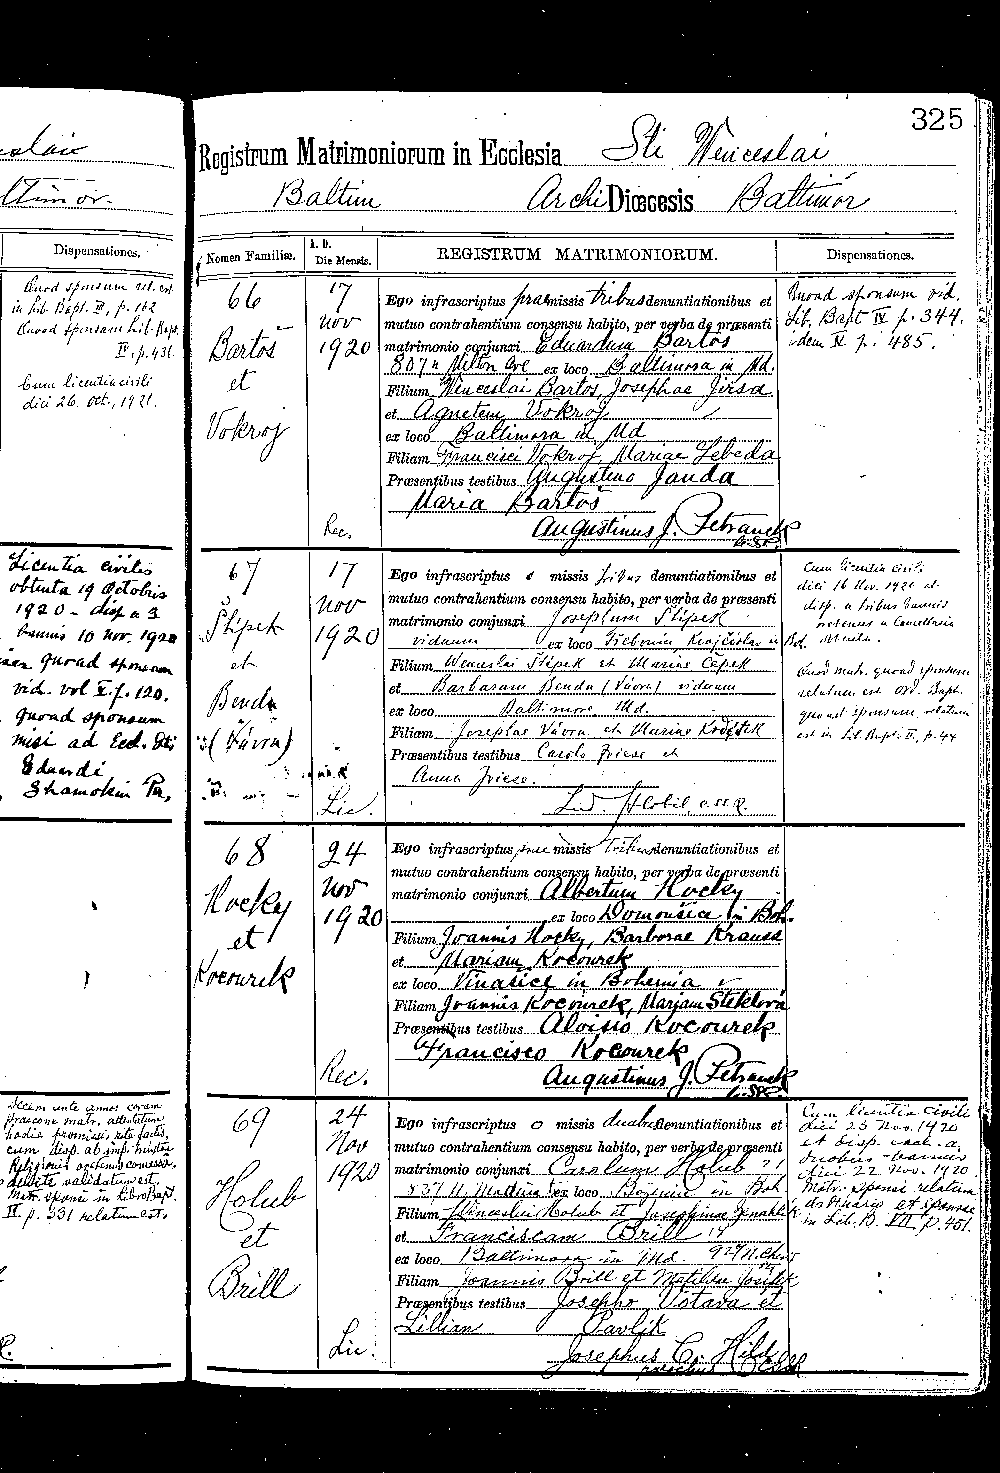 325
Registrum Matrimoniorum in Ecclesia Sti Wenceslai
Baltim Archi Diœcesis Baltimor
Nomen Familiæ.
A. D.
Die Mensis.
REGISTRUM MATRIMONIORUM.
Dispensationes.
66
Bartoš
et
Vokroj
17
Nov
1920
Rec.
Ego infrascriptus præmissis tribus denuntiationibus et
mutuo contrahentium consensu habito, per verba de præsenti
matrimonio conjunxi Eduardum Bartos
807 n Milton Ave ex loco Baltimora in Md.
Filium Wenceslai Bartos, Josephae Jirsa
et Agnetem Vokroj
ex loco Baltimora in Md
Filiam Francisci Vokroj, Mariae Lebeda
Præsentibus testibus Augustino Janda
Maria Bartoš
Augustinus J. Petranek
C.SS.R.
Quoad sponsum vid.
Lib. Bapt IV p. 344.
idem V p. 485.
67
Štipek
et
Benda
(Vávra)
17
Nov
1920
Lic.
Ego infrascriptus o missis tribus denuntiationibus et
mutuo contrahentium consensu habito, per verba de præsenti
matrimonio conjunxi Josephum Štipek
viduum ex loco in Boh.
Filium Wenceslai Štipek et Mariae Čapek
et Barbaram Benda (Vávra) viduam
ex loco Baltimore Md.
Filiam Josephae Vávra et Mariae
Præsentibus testibus Carolo Friese et
Anna Friese.
Lud. Hlobil C.SS.R.
Cum licentia civili
diei 16 Nov. 1920 et
disp. a tribus bannis
obtenta.
Quod matr. quoad sponsam
relatum est
quoad sponsum relatum
est in Lib Bapt. II, p. 44
68
Hocky
et
Kocourek
24
Nov
1920
Rec.
Ego infrascriptus præ missis tribus denuntiationibus et
mutuo contrahentium consensu habito, per verba de præsenti
matrimonio conjunxi Albertum Hocky
ex loco Domoušice in Boh.
Filium Joannis Hocky, Barborae Krausa
et Mariam Kocourek
ex loco Vinařice in Bohemia
Filiam Joannis Kocourek, Mariam Steklová
Præsentibus testibus Aloisio Kocourek
Francisco Kocourek
Augustinus J. Petranek
C.SS.R.
69
Holub
et
Brill
24
Nov
1920
Lic.
Ego infrascriptus o missis duabus denuntiationibus et
mutuo contrahentium consensu habito, per verba de præsenti
matrimonio conjunxi Carolum Holub 21
837 N. Madeira ex loco in Boh
Filium Wenceslai Holub et Josephinae
et Franciscam Brill 19
ex loco Baltimora in Md. 927 N.
Filiam Joannis Brill et Matildae
Præsentibus testibus Josepho Votava et
Lillian Pavlik
Josephus C. Hild
parochus CSSR
Cum licentia civili
diei 23 Nov. 1920
et disp. eccl. a
duobus bannis
diei 22 Nov. 1920
Matr. sponsi relatum
et sponsae
in Lib. B. VII p. 451.
Dispensationes.
Quod sponsum rel. est
in Lib. Bapt. III, p. 162
Quoad sponsam Lib. Bapt.
IV. p. 431.
Cum licentia civili
diei 26. Oct., 1921.
Licentia civilis
obtenta 19 Octobris
1920 - disp a 3
bannis 10 Nov. 1920
quoad sponsam
vid. vol V. p. 120.
quoad sponsum
misi ad Eccl. Sti
Eduardi
Shamokin Pa,
Decem ante annos coram
Praecone matr. attentatum
hodie promissis rite factis,
cum disp. ab imp. mixtae
Religionis
debite validatum est.
Matr. sponsi in Libro Bapt.
II. p. 331 relatum est.